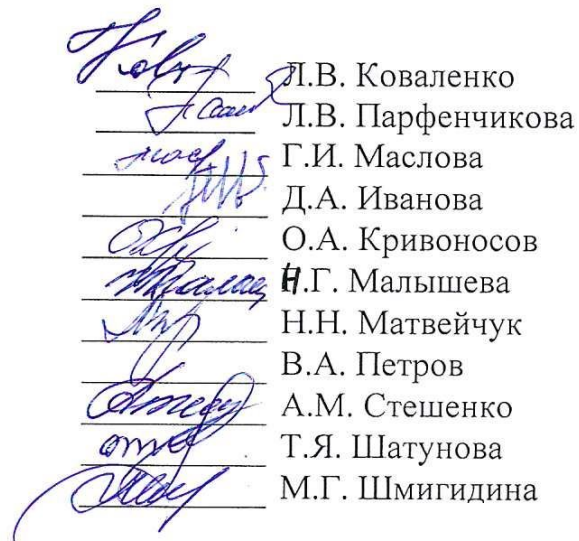 Л.В. Коваленко
Л.В. Парфенчикова
Г.И. Маслова
Д.А. Иванова
О.А. Кривоносов
Н.Г. Малышева
Н.Н. Матвейчук
В.А. Петров
А.М. Стешенко
Т.Я. Шатунова
М.Г. Шмигидина